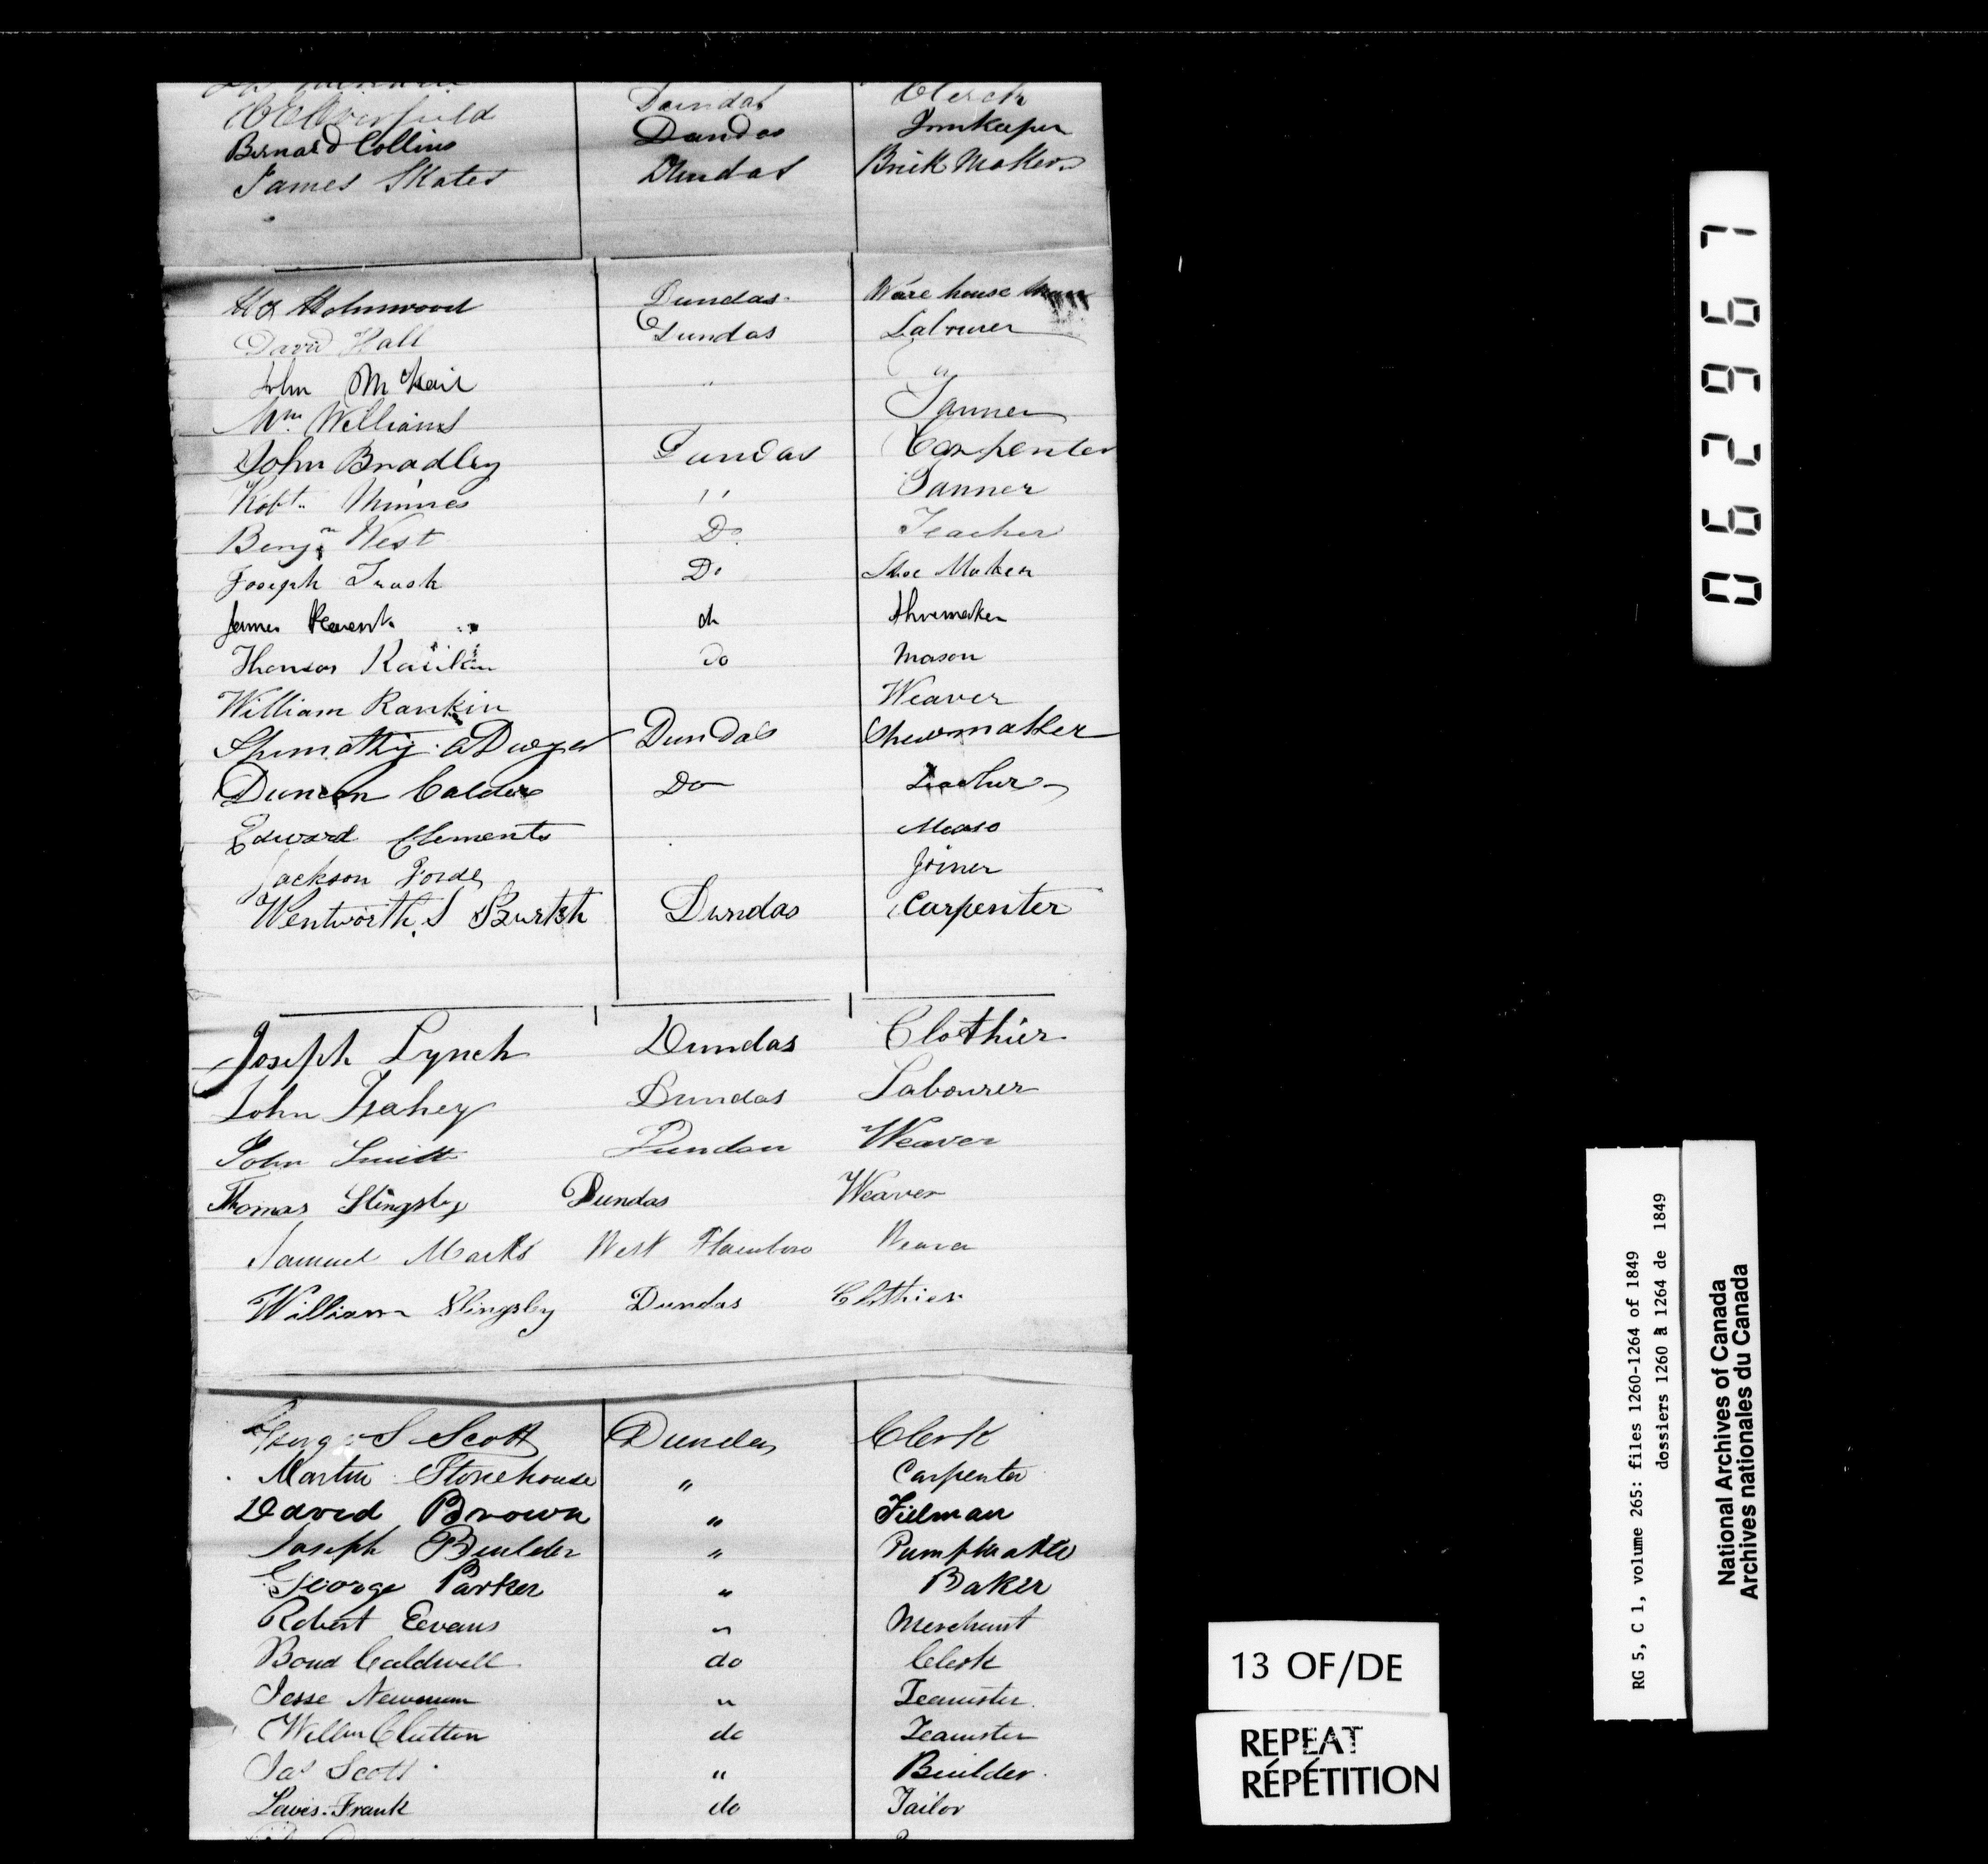 Dundas Clerk
Bernard Collins Dundas Innkeeper
James Skates Dundas Brick Maker
Holmwood Dundas Ware house man
David Hall Dundas Labourer
John McNair " "
Wm. Williams Tanner
John Bradley Dundas Carpenter
Robt. Minnes " Tanner
Benjn West Do. Teacher
Joseph Trask Do Shoe Maker
James do Shoemaker
Thomas Do Mason
William Rankin Weaver
Dundas Shewmaker
Duncan Calder Do
Edward Clements
Jackson Forde Joiner
Wentworth S Burtch Dundas Carpenter
Joseph Lynch Dundas Clothier
John Fahey Dundas Labourer
John Smith Dundas Weaver
Thomas Slingsby Dundas Weaver
Samuel Marks West Flamboro Weaver
William Slingsby Dundas Clothier
George S Scott Dundas Clerk
Martin Stonehouse " Carpenter
David Brown "
Joseph Builder "
George Parker " Baker
Robert Eevans " Merchant
Bond Caldwell do Clerk
Jesse Newman " Teamster
Clutton do Teamster
Jas Scott " Builder
Lewis Frank do Tailor
062967
RG 5, C 1, volume 265: files 1260-1264 of 1849
dossiers 1260 à 1264 de 1849
National Archives of Canada
Archives nationales du Canada
13 OF/DE
REPEAT
RÉPÉTITION